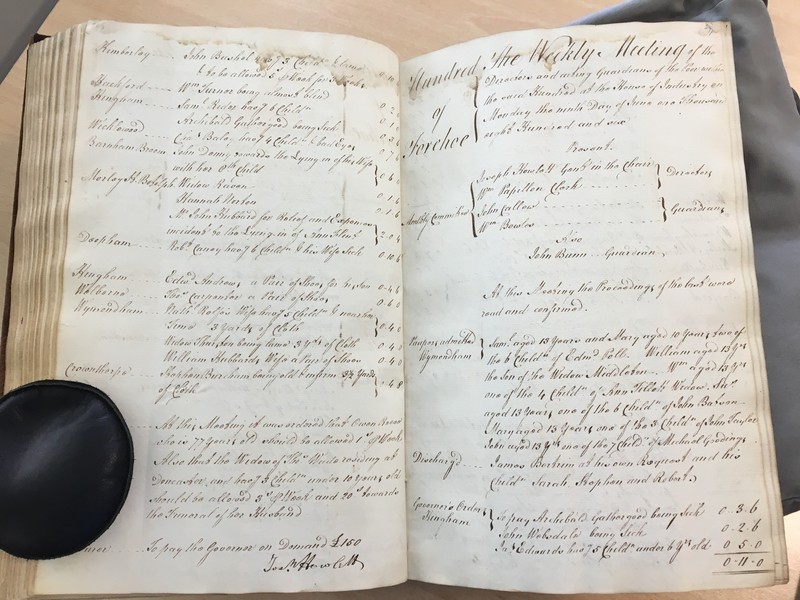 Kimberley John Bushel has 7 5 Childn
to be allowed 5s P Week for
Hackford Wm Turner being almost blind
Hingham Saml Rudes has 6 Childn
Archibald Gathergood being Sick
Wicklewood
Barnham Broom John Downg towards the Lying in of his Wife
with her 8th Child 0 6
Morley St Botolph Widow
Hannah Norton 0 1 6
Mr John Hubbard for Relief and Expences
incident to the Lying in of Ann Flint 2 0
Deopham Robt Canay has 6 Childn & his Wife Sick 0 10 6
Hingham Edwd Andrews a Pair of Shoes for his Son 0 4 6
Welborne Thos Carpenter a Pair of Shoes 0 6 0
Wymondham Nathl Rolfes Wife has 5 Childn & near her
Time 3 Yards of Cloth 0 4 0
Widow Thurston being lame 3 Yds of Cloth 0 4 0
William Hebbards Wife a Pair of Shoes 0 4 0
Crownthorpe Stephen Burcham being old & infirm 3½ Yards
of Cloth 4 8
At this Meeting it was ordered that Owen
who is 77 Years old should be allowed 1s P Week
Also that the Widow of Thos Wade residing at
Doncaster and has 3 Childn under 10 Years old
should be allowed 3s P Week and 20s towards
the Funeral of her Husband
To pay the Governor on Demand £150
Josh Howlett
Hundred of Forehoe
The Weekly Meeting of the
Directors and acting Guardians of the Poor within
the said Hundred at the House of Industry on
Monday the ninth Day of June one Thousand
eight Hundred and six
Present
Monthly Committee
Joseph Howlett Gent. in the Chair
Wm Papillon Clerk
Directors
John Callow
Wm Bowles
Guardians
Also
John Bunn Guardian
At this Meeting the Proceedings of the last were
read and confirmed.
Paupers admitted
Wymondham
Saml aged 13 Years and Mary aged 10 Years two of
the 6 Childn of Edwd Poll William aged 13 Yrs
the Son of the Widow Middleton Wm aged 13 Yrs
one of the 4 Childn of Ann Tillett Widow
aged 13 Years one of the 6 Childn of John Batson
Mary aged 13 Years one of the 3 Childn of John Taylor
John aged 13 Yrs one of the 7 Childn of Michael Goodings
Discharg'd James Bertrim at his own Request and his
Childn Sarah, Stephen and Robert
Governors Order
Hingham
To pay Archibald Gathergood being Sick 0-3-6
John Wobsdale being Sick 0-2-6
Jas Edwards has 5 Childn under 6 Yrs old 0-5-0
0-11-0